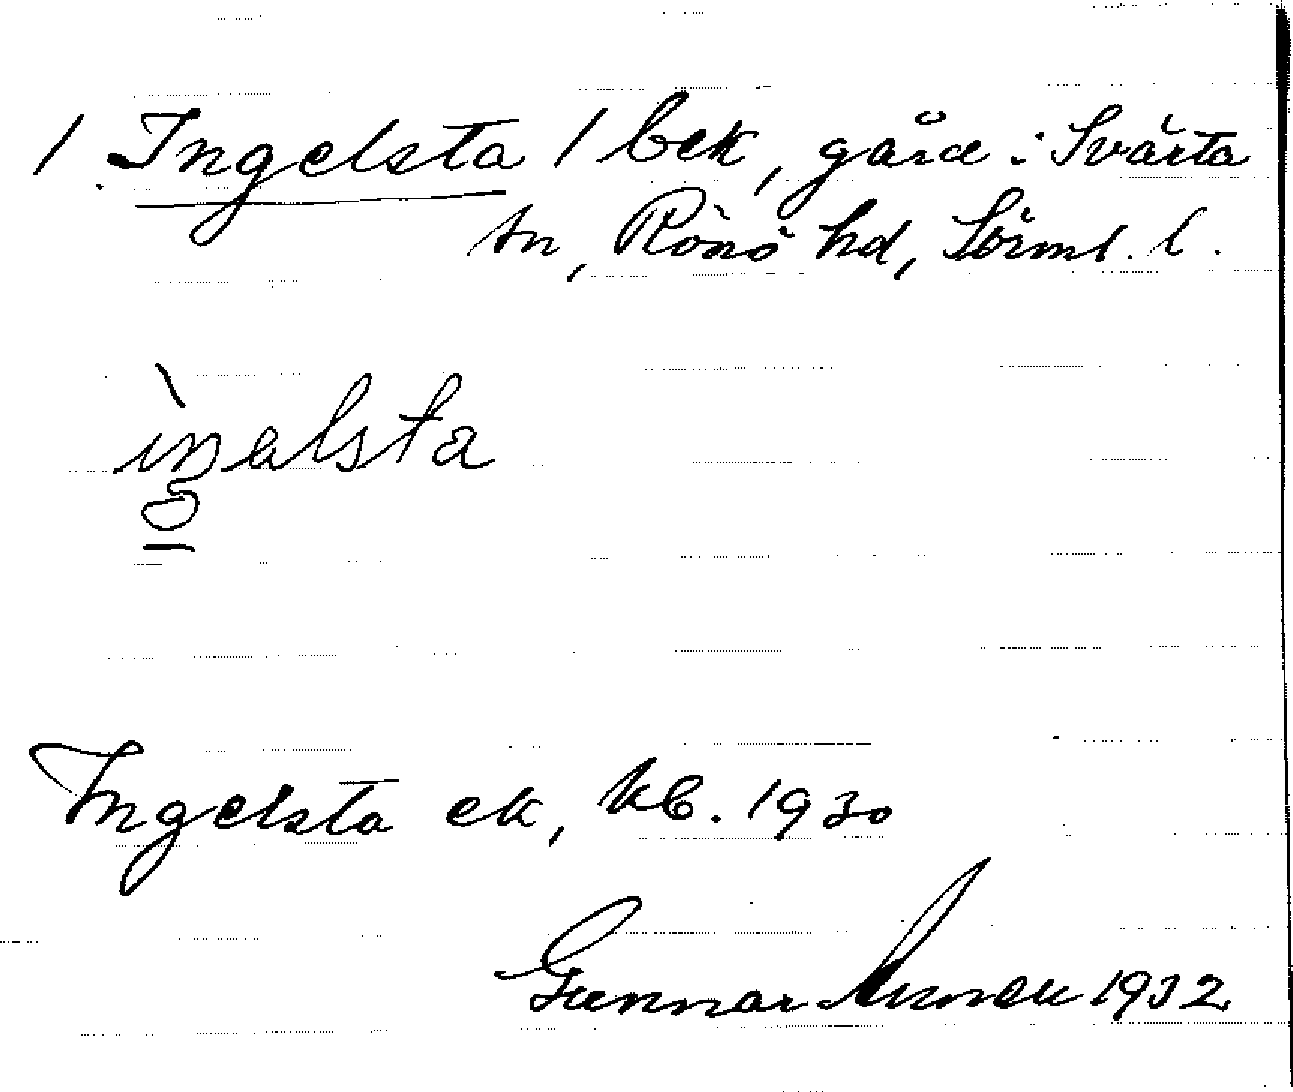 1 Ingelsta / bek, gård i Svärta
sn, Rönö hd, Sörml. l.
ìŋəlsta
Ingelsta ek, kb. 1930
Gunnar 1932